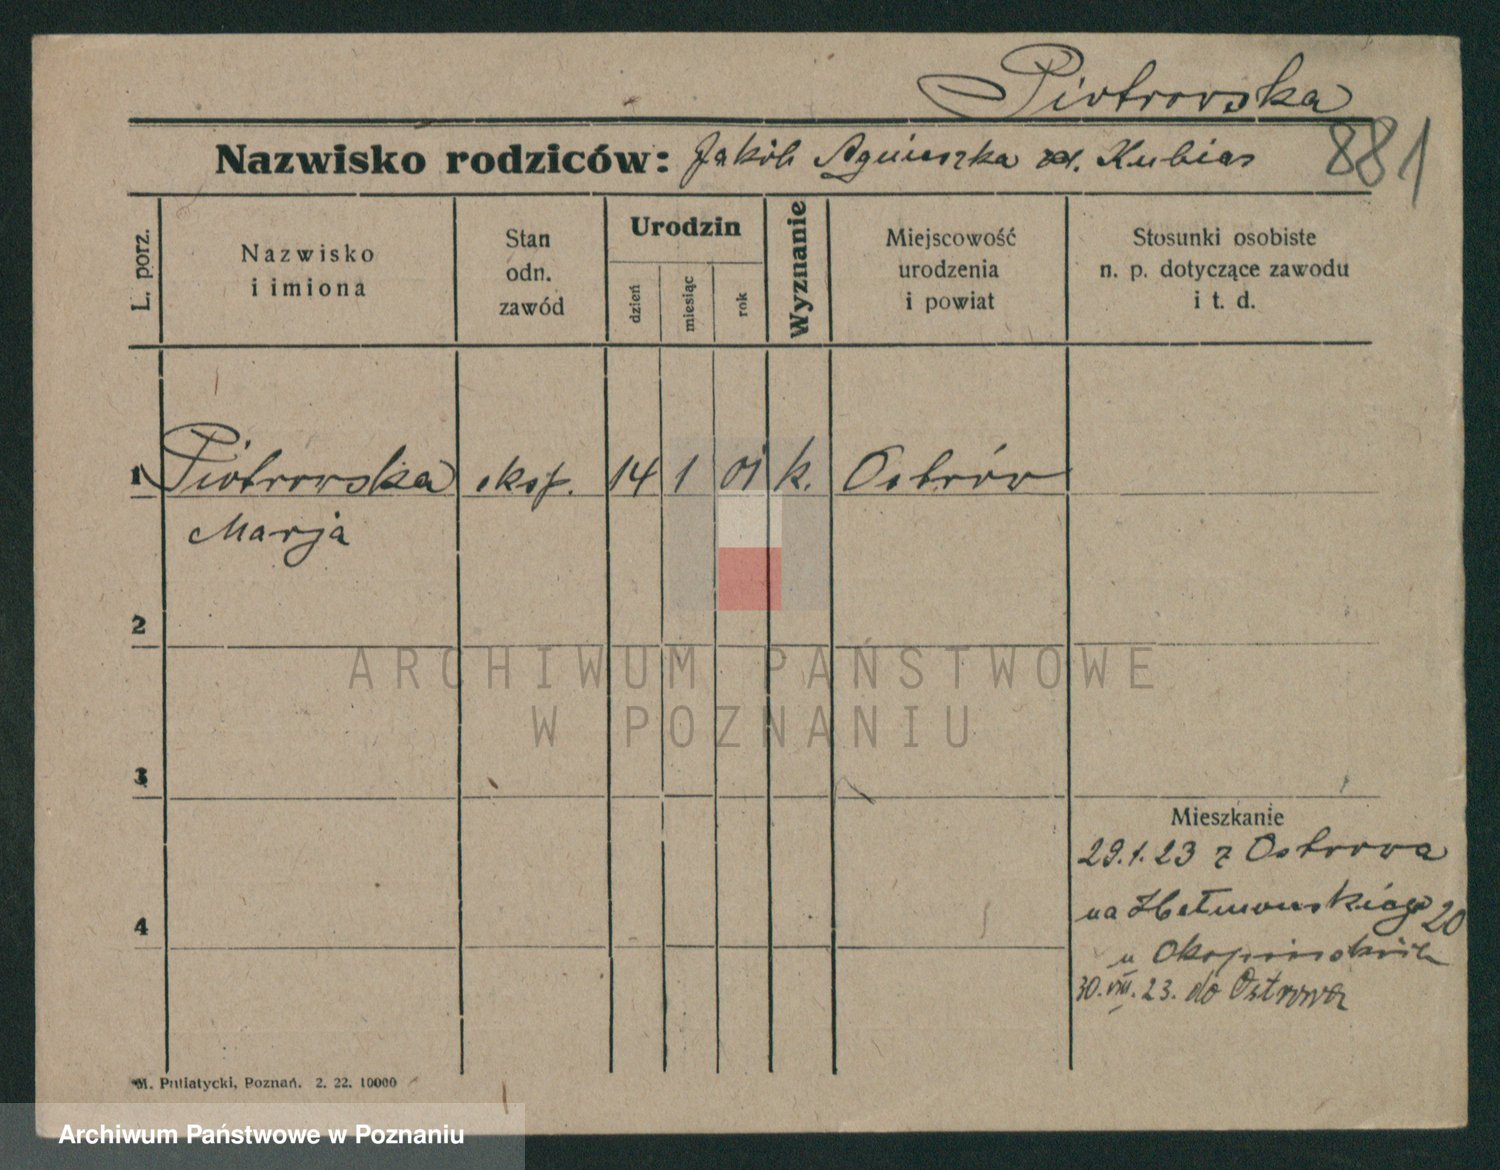 Piotrowska
Nazwisko rodziców: Jakób Agnieszka z d. Kubias
881
L. porz.
Nazwisko
i imiona
Stan
odn.
zawód
Urodzin
dzień
miesiąc
rok
Wyznanie
Miejscowość
urodzenia
i powiat
Stosunki osobiste
n. p. dotyczące zawodu
i t. d.
1 Piotrowska eksp. 14 1 01 k. Ostrów
Marja
2
ARCHIWUM PAŃSTWOWE
W POZNANIU
3
Mieszkanie
29.1.23 z Ostrowa
4
na 20
u
30. VIII. 23. do Ostrowa
M. Putiatycki, Poznań. 2. 22. 10000
Archiwum Państwowe w Poznaniu